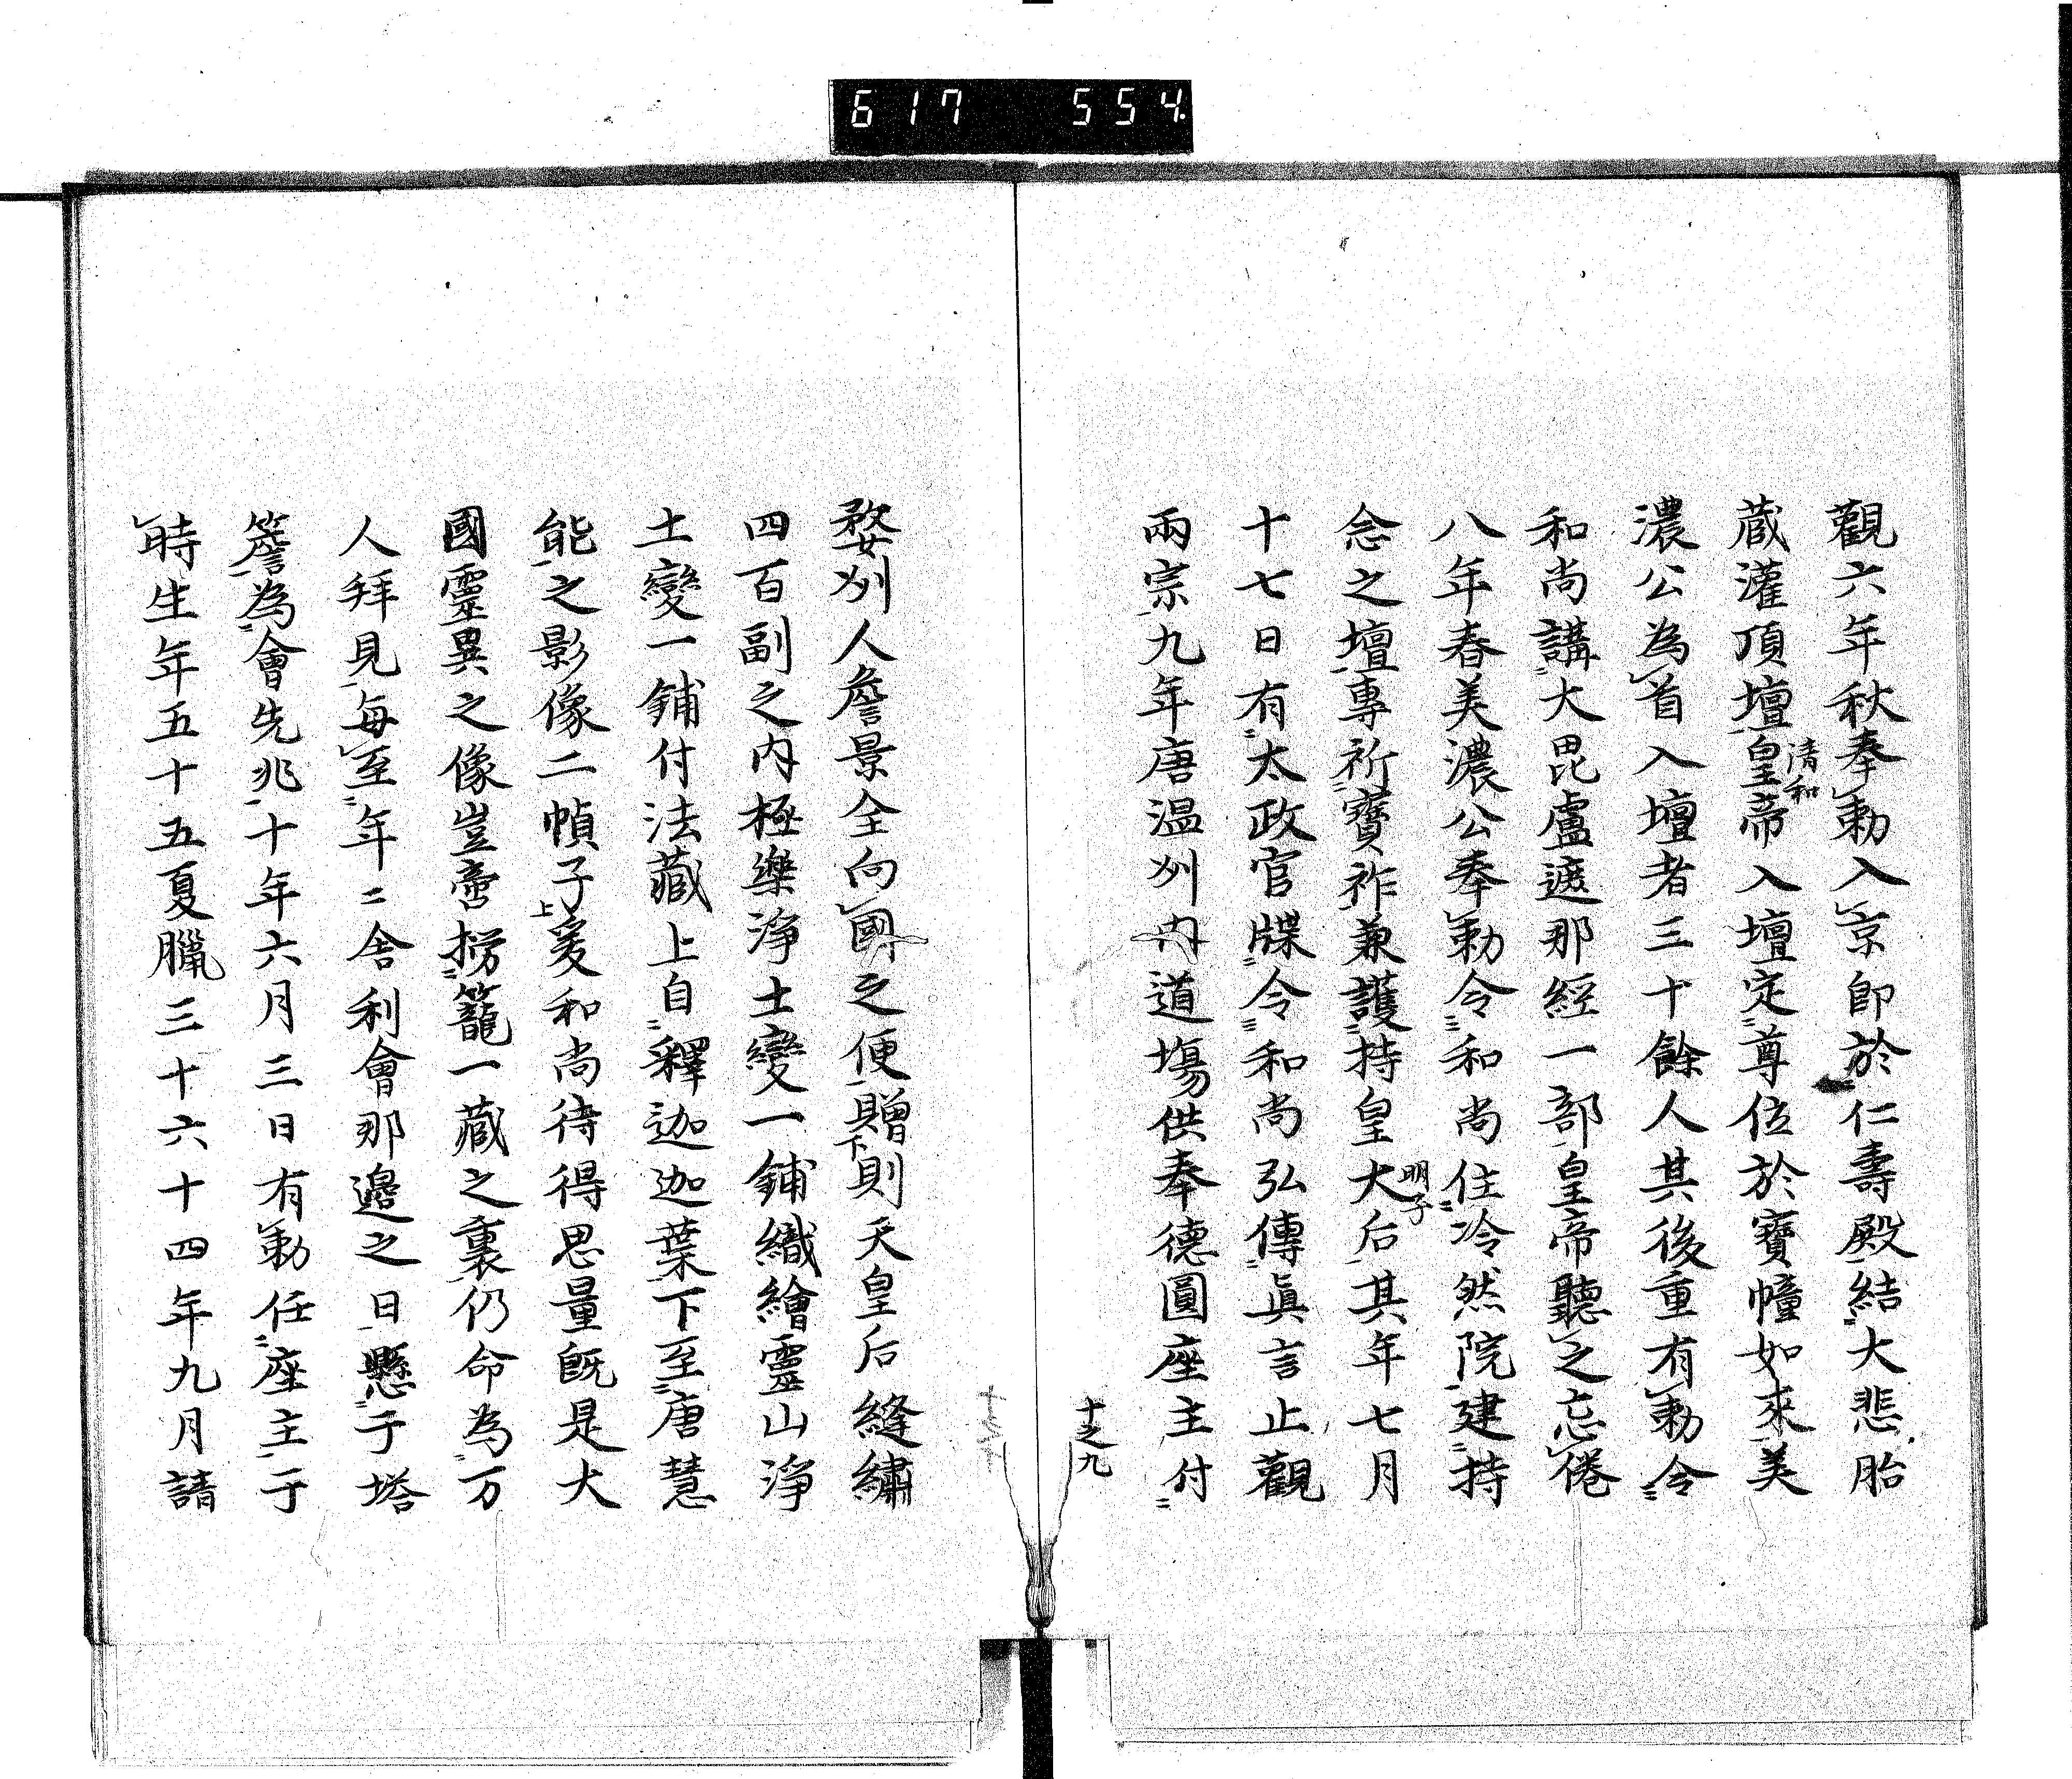 617 554
觀六年秋奉勅入京卽於仁壽殿結大悲胎
蔵灌頂壇皇帝入壇定尊位於寶幢如來美
清和
濃公為首入壇者三十餘人其後重有勅令
和尚講大毘盧遮那經一部皇帝聽之忘倦
八年春美濃公奉勅令和尚住冷然院建持
念之壇專祈寶祚兼護持皇大后其年七月
明子
十七日有太政官牒令和尚弘傳眞言止觀
兩宗九年唐温州内道場供奉德圓座主付
十之九
婺州人詹景全向國之便贈則天皇后縫繡
下
四百副之内極樂淨土變一鋪織繪靈山淨
土變一鋪付法藏上自釋迦迦葉下至唐慧
能之影像二幀子爰和尚待得思量旣是大
上
國靈異之像豈啻撈籠一藏之裏仍命為万
人拜見每至年〻舎利會那邊之日懸于塔
簷為會先兆十年六月三日有勅任座主于
時生年五十五夏臈三十六十四年九月請